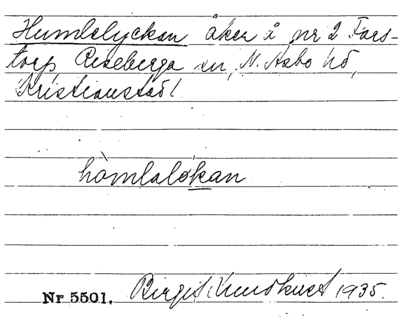 Humlelyckan åker å nr 2 Fars-
torp Riseberga sn, N. Åsbo hd,
Kristianstad l
hòmlalökan
Nr 5501. Birgit 1935.